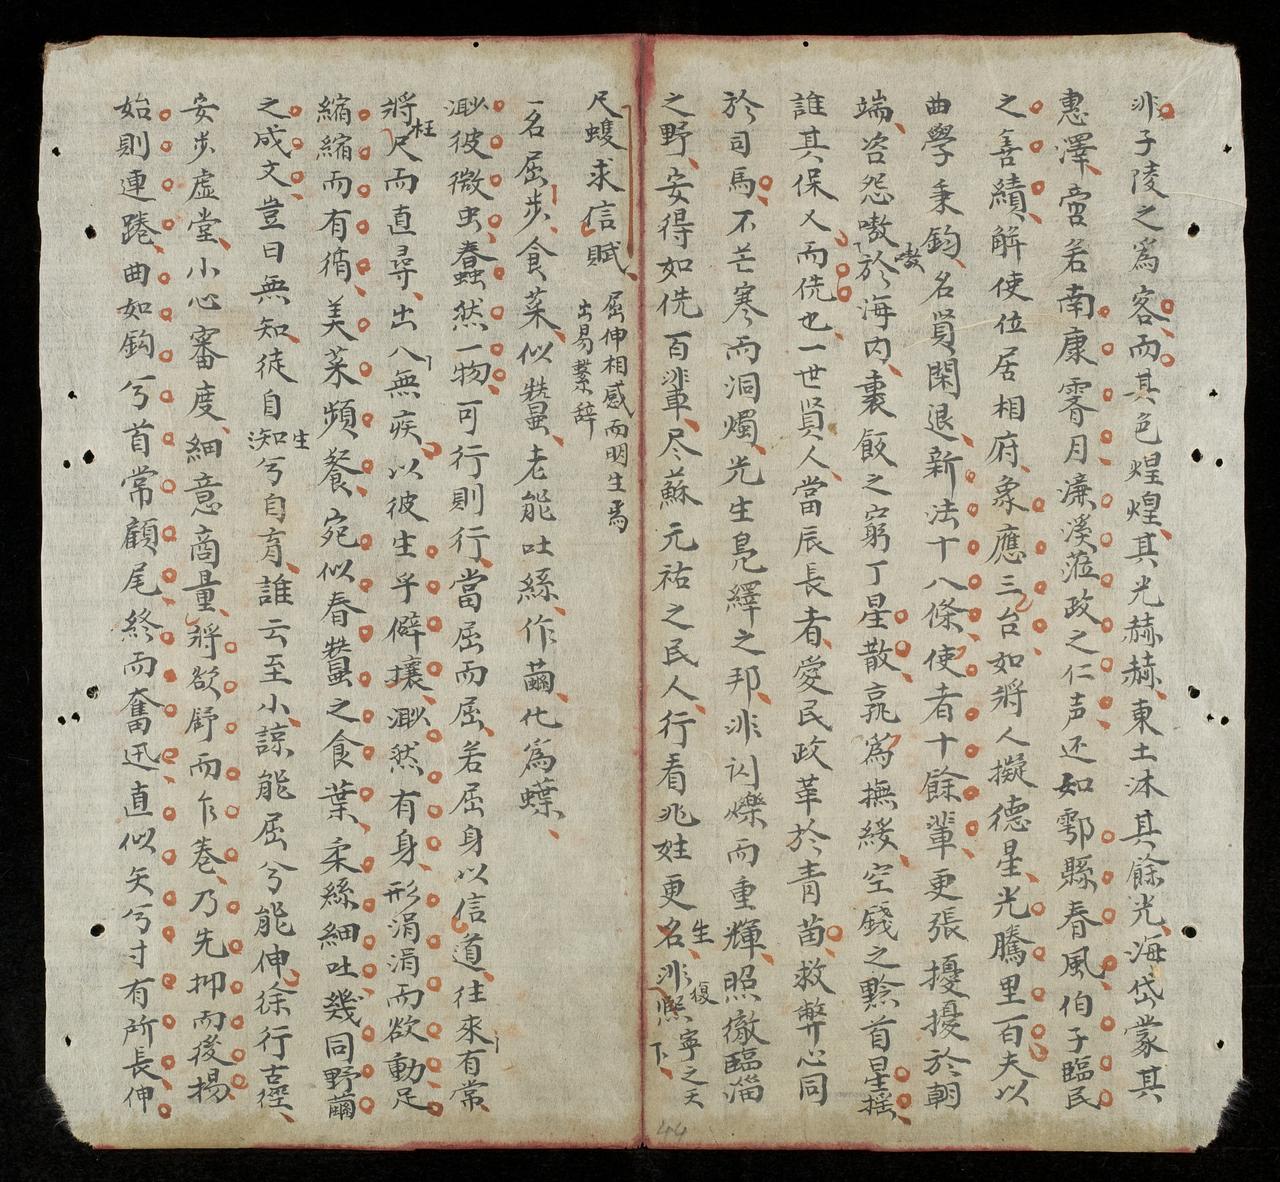 非子陵之爲客而其色煌煌其光赫赫東土沐其餘光海岱蒙其
惠澤啻若南康霽月濂溪蒞政之仁声还如鄠縣春風伯子臨民
之善績觧使位居相府象應三台如將人擬德星光騰里百夫以
曲學秉鈞名賢閑退新法十八條使者十餘輩更張擾擾於朝
端咨怨嗷嗷於海内裹飯之窮丁星散孰爲撫綏空錢之黔首星摇
誰其保乂而侁也一世賢人當辰長者愛民政革於青苗救弊心同
於司馬不芒寒而洞燭光生鳧繹之邦非闪爍而重輝照徹臨淄
之野安得如侁百輩尽蘇元祐之民人行看兆姓更生名非復熈寧之天下
尺蠖求信賦 屈伸相感而明生焉
出易繋辞
一名屈步食菜似蠶老能吐絲作繭化爲蝶
渺彼微虫蠢然一物可行則行當屈而屈若屈身以信道往來有常
將枉尺而直尋出入無疾以彼生乎僻壤渺然有身形涓涓而欲動足
縮縮而有循美菜頻餐宛似春蠶之食葉柔絲細吐幾同野繭
之成文豈曰無知徒自知兮自育誰云至小諒能屈兮能伸徐行古壁
安步虚堂小心審度細意商量將欲舒而乍卷乃先抑而後揚
始則連踡曲如鈎兮首常顧尾終而奮迅直似矢兮寸有所長伸